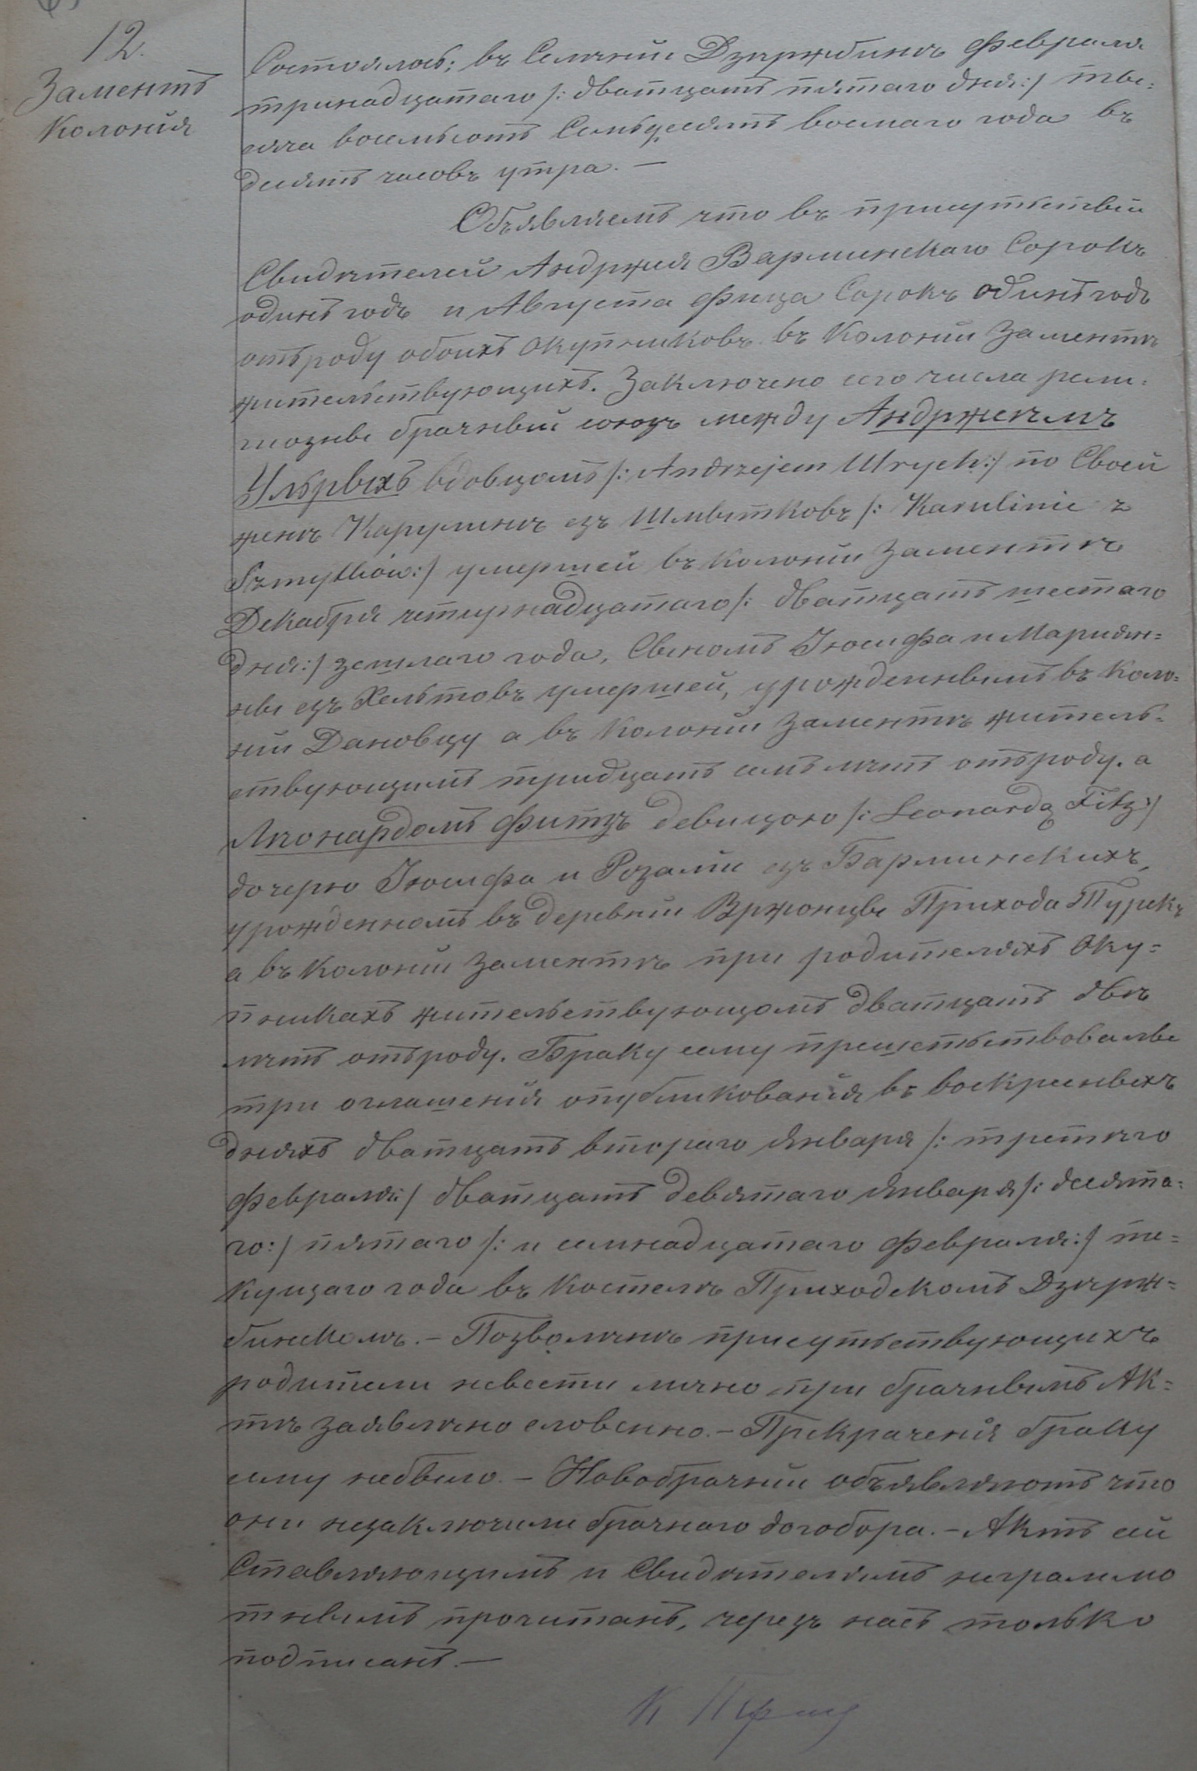 12.
Заментъ
Колонія
Состоялось: въ Селеніи Дзержбинъ Февраля
тринадцатаго /: дватцать пятаго дня:/ ты-
сяча восемьсотъ Семьдесятъ восмаго года въ
десять часовъ утра. —
Объявляемъ что въ присутствіи
Свидѣтелей Андржея Варминскаго Сорокъ
одинъ годъ и Августа Фица Сорокъ одинъ годъ
отъ роду обоихъ окупниковъ въ Колоніи Заментъ
жительствующихъ. Заключено сего числа рели-
гіозны брачный союзъ между Андржеемъ
Ульрыхъ вдовцомъ /: Andrzejem Ulrych:/ по Своей
женѣ Карулинѣ езъ Шмытковъ /: Karulinie z
Szmytków:/ умершей въ Колоніи Заментъ
Декабря четырнадцатаго /: дватцать шестаго
дня:/ зешлаго года, Сыномъ Іюсифа и Маріян-
ны езъ Хельтовъ умершей, урожденнымъ въ Коло-
ніи Дановцу а въ Колоніи Заментъ житель-
ствующимъ тридцать семь лѣтъ отъ роду. а
Леонардомъ Фитзъ девицою /: Leonardą Fitz:/
дочерью Іюсифа и Розаліи езъ Варминскихъ,
урожденномъ въ деревніи Вржонцы Прихода Турекъ
а въ Колоніи Заментъ при родителяхъ Оку-
пникахъ жительствующомъ дватцать двѣ
лѣтъ отъ роду. Браку сему прешетьствовалы
три оглашенія опубликованія въ воскресныхъ
дняхъ дватцать втораго Января /: третяго
Февраля:/ дватцать девятаго Января /: десята-
го:/ пятаго /: и семнадцатаго Февраля:/ те-
кущаго года въ Костелѣ Приходскомъ Дзерж-
бинскомъ. – Позволѣнъ присутьствующихъ
родители невести лично при брачнымъ Ак-
тѣ заявлено словенно. – Прекраченія браку
сему небыло. – Новобрачніи объявляютъ что
они незаключили брачнаго договора. – Актъ сей
Ставляющимъ и Свидѣтелямъ награмо
тнымъ прочитанъ, черезъ насъ только
подписанъ. —